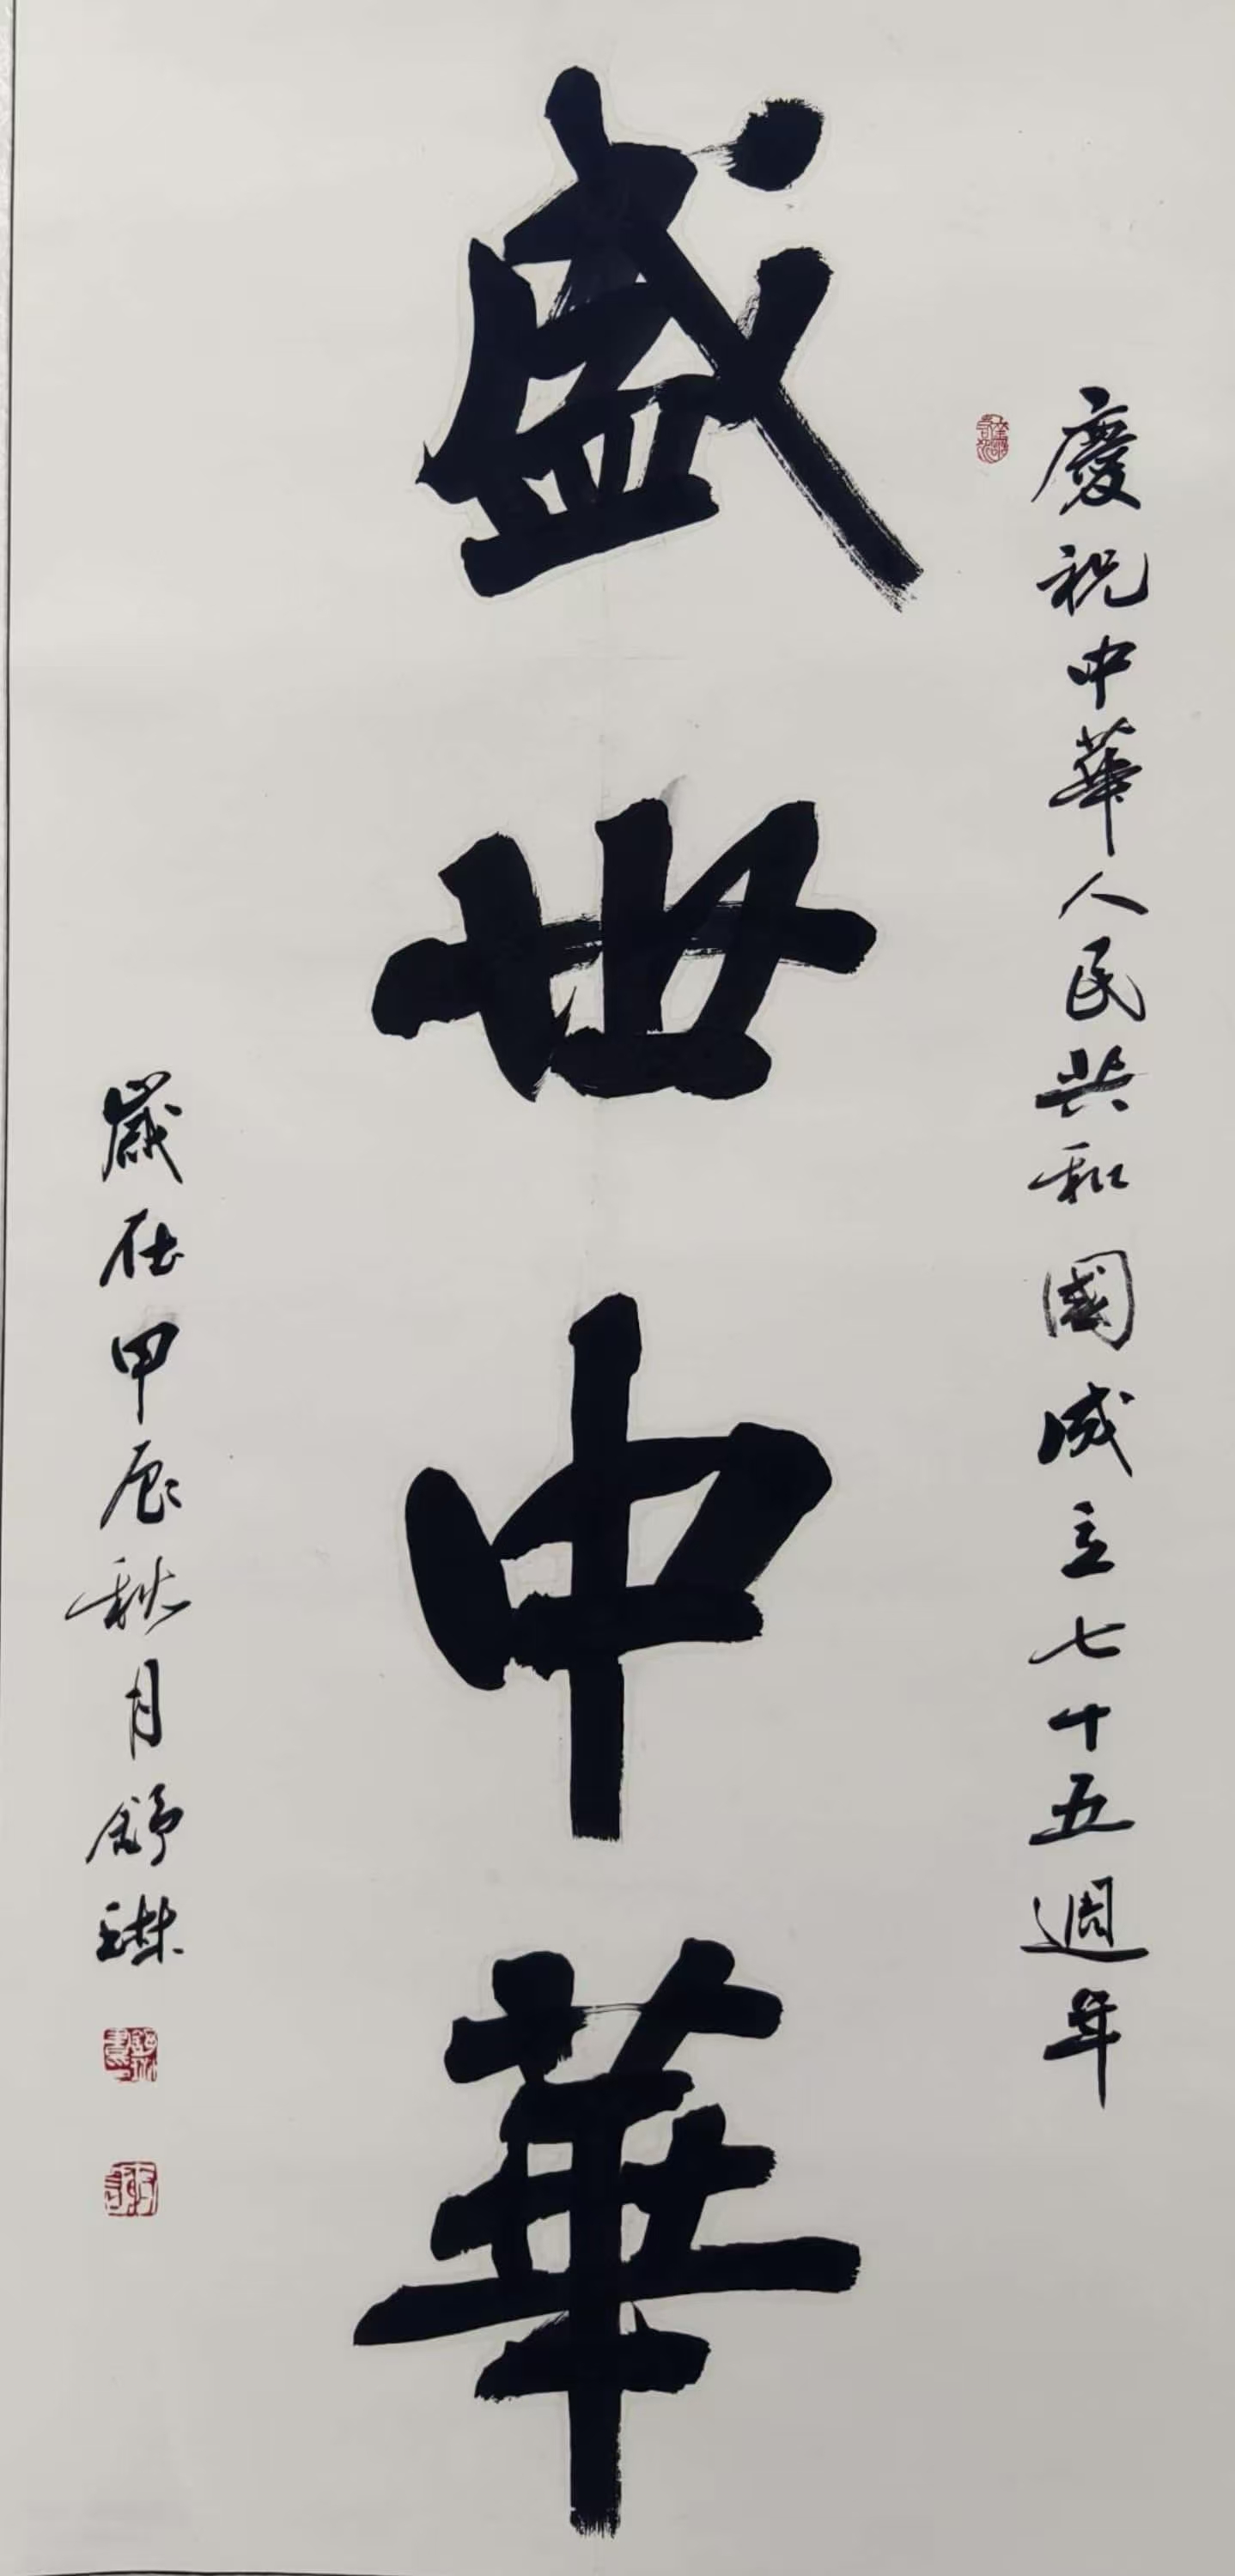 慶祝中華人民共和國成立七十五週年
盛世中華
歲在甲辰秋月舒琳